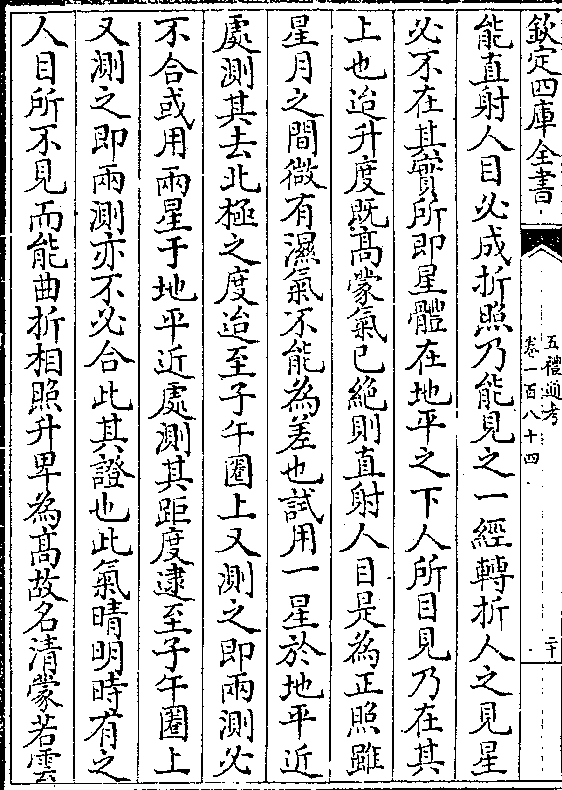 欽定四庫全書
五禮通考
卷一百八十四
二十
能直射人目必成折照乃能見之一經轉折人之見星
必不在其實所即星體在地平之下人所目見乃在其
上也迨升度既高蒙氣已絶則直射人目是為正照雖
星月之間微有濕氣不能為差也試用一星於地平近
處測其去北極之度迨至子午圈上又測之即兩測必
不合或用兩星于地平近處測其距度逮至子午圈上
又測之即兩測亦不必合此其證也此氣晴明時有之
人目所不見而能曲折相照升卑為高故名清蒙若雲